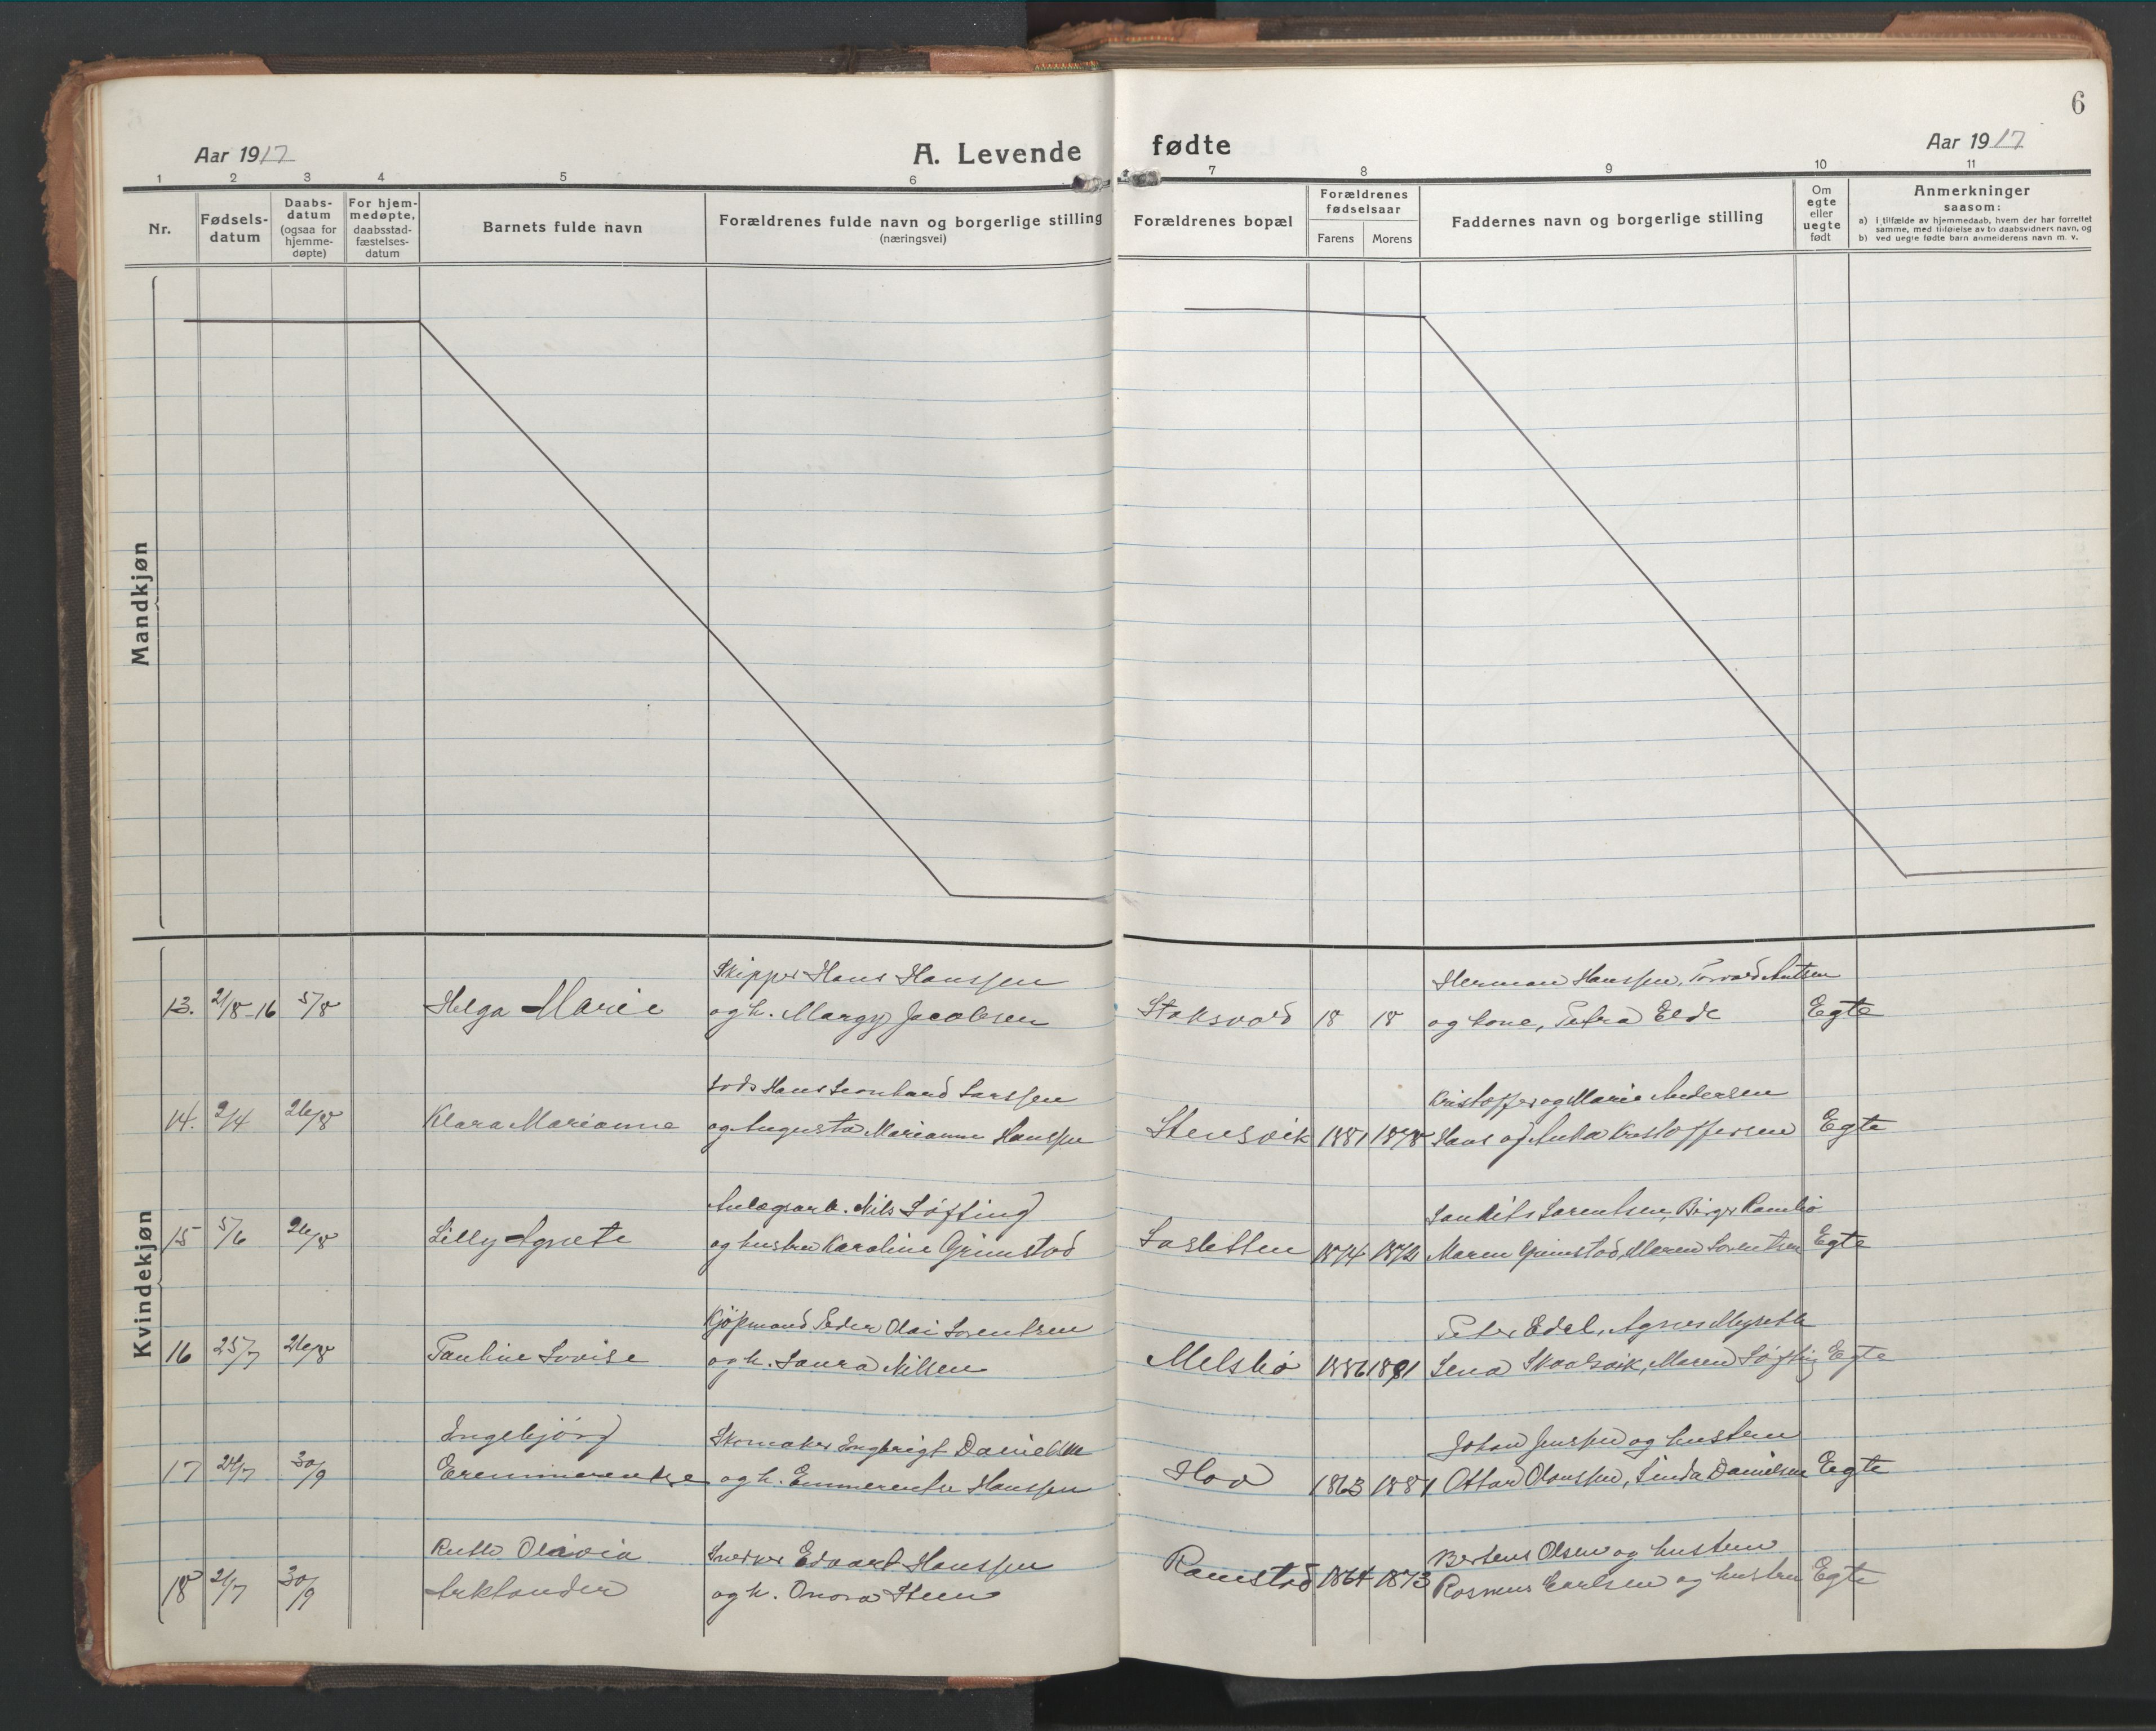 6
Aar 1917
A. Levende fødte
Aar 1917
1 2 3 4 5 6 7 8 9 10 11
Nr.
Fødsels-
datum
Daabs-
datum
(ogsaa for
hjemme-
døpte)
For hjem-
medøpte,
daabsstad-
fæstelses-
datum
Barnets fulde navn
Forældrenes fulde navn og borgerlige stilling
(næringsvei)
Forældrenes bopæl
Forældrenes
fødselsaar
Farens Morens
Faddernes navn og borgerlige stilling
Om
egte
eller
uegte
født
Anmerkninger
saasom:
a) I tilfælde av hjemmedaab, hvem der har forrettet
samme, med tilføielse av to daabsvidners navn, og
b) ved uegte fødte barn anmelderens navn m. v.
Mandkjøn
Kvindekjøn
Skipper Hans Hanssen Herman Hanssen,
13. 21/8-16 5/8 Helga Marie og h. Margy Jacobsen Stoksvord 18 18 og kone, Petra Egte
Lods Hans Leonhard Larssen Kristoffer og Marie Andersen
14. 2/4 26/8 Klara Marianne og Augusta Marianne Hanssen Stensvik 1881 1878 Hans og Kristoffersen Egte
Anlægsarb. Nils Løfting Lorentsen, Birger
15 5/6 26/8 Lilly Agnete og hustru Karoline Grimstad 1874 Maren Grimstad, Maren Lorentsen Egte
Kjøpmand Peder Olai Lorentsen Peter Edel, Agnes
16 25/7 26/8 Pauline Lovise og h. Laura Nilsen Melsbø 1886 1891 Lena Skaalsvik, Maren Løfting Egte
Ingebjørg Skomaker Ingbrigt Danielsen Johan Jenssen og hustru
17 24/7 30/9 Eremmerentse og h. Emmerentse Hanssen Hov 1863 1881 Ottar Danielsen Egte
Ruth Olivia Edvart Hanssen Olsen og hustru
18 21/7 30/9 og h. Onora Steen Ramstad 1864 1873 Rasmus Carlsen og hustru Egte